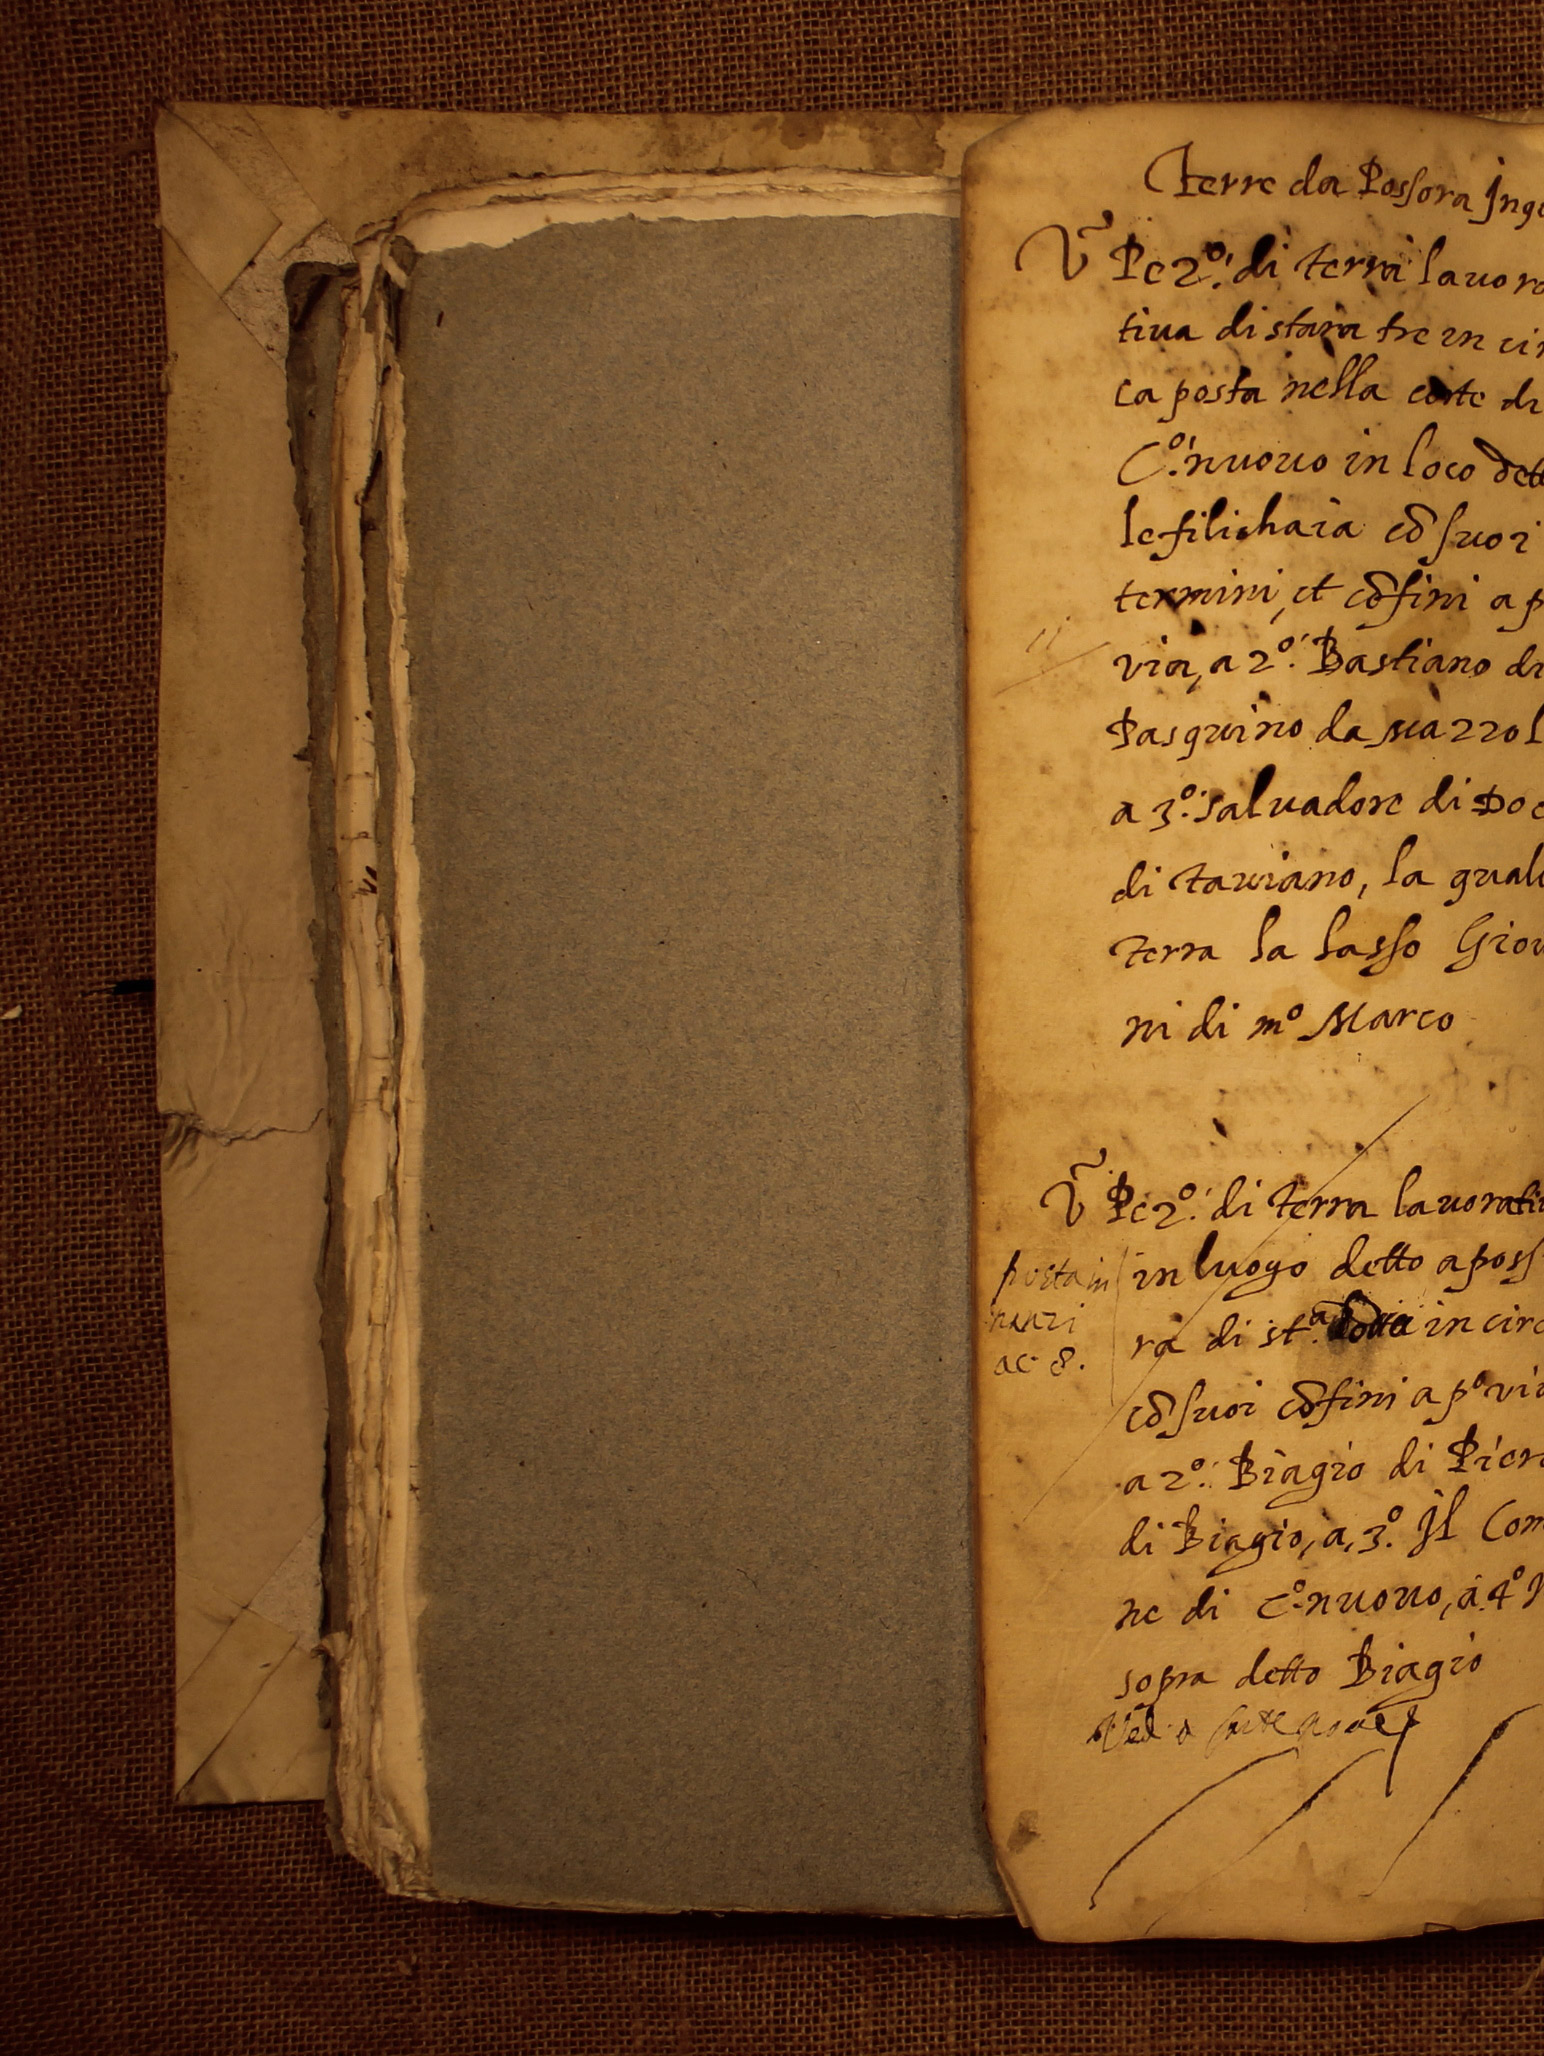 Terre da Possora Ing
Vº Pezº: di terra lauora
tiua di stara tre in cir
ca posta nella corte di
Cº: nuouo in loco dett
le filichaia cõ suoi
termini, et cõfini a p
via, a 2º: Bastiano di
Pasquino da Mazzol
a 3º: Saluadore di Do
di tauiano, la qual
terra la lasso Giou
ni di mº Marco
Pezº: di terra lauorati
in luogo detto a poss
ra di stª in circ
cõ suoi cõfini a pº vi
a 2º: Biagio di Pier
di Biagio, a, 3º. Il Com
ne di Cº nuouo, a 4º
sopra detto Biagio
posta in
nanzi
ac 8.